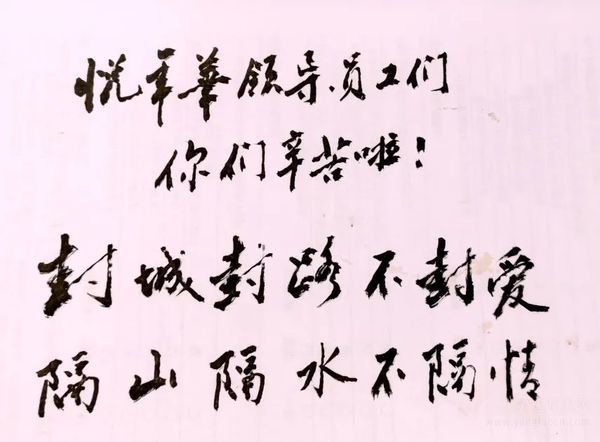 悦年华领导员工们
你们辛苦啦!
封城封路不封爱
隔山隔水不隔情